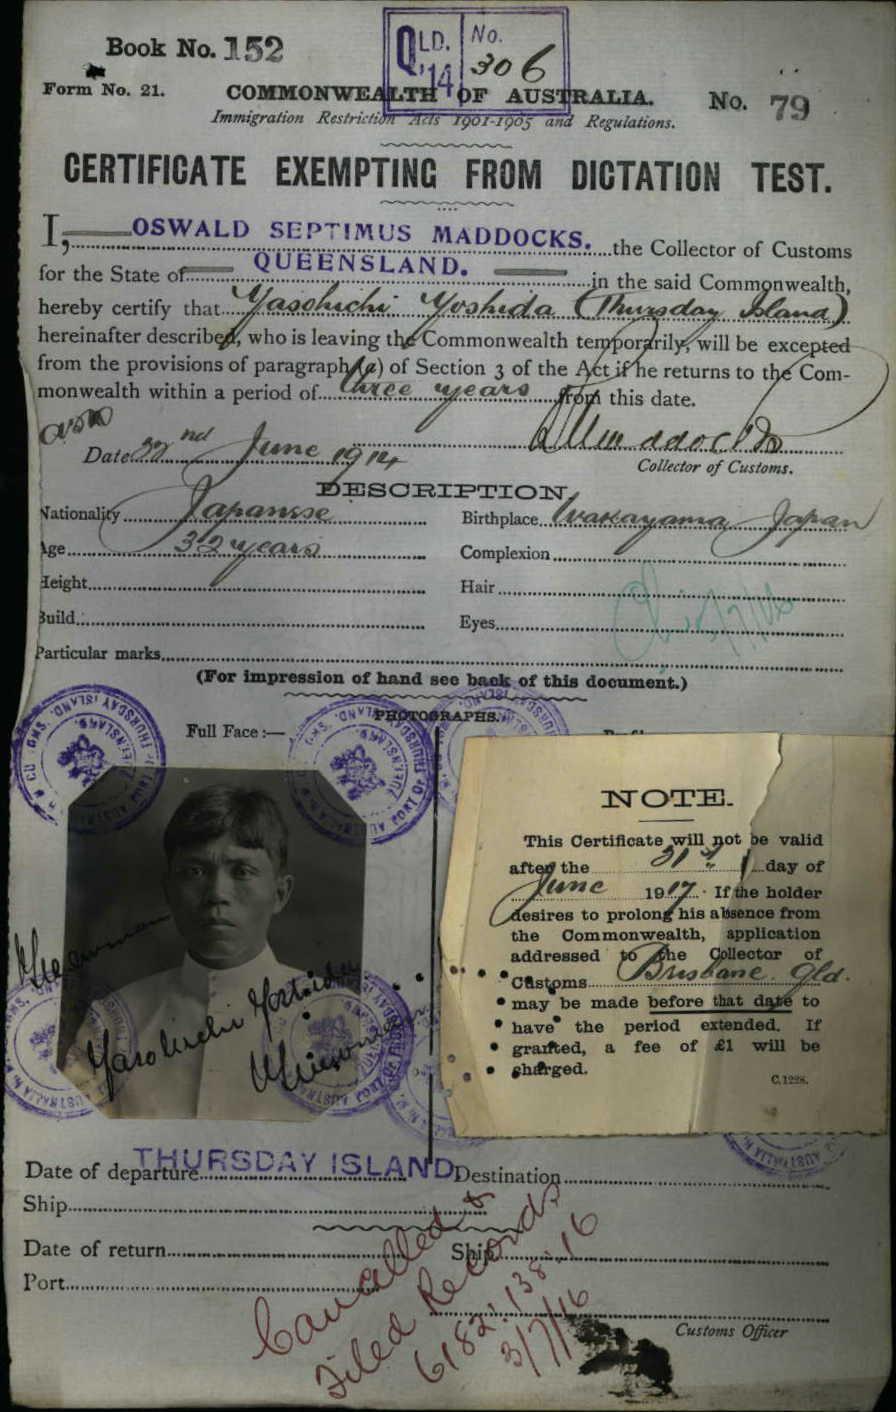 Book No. 152
QLD. '14
No. 306
Form No. 21.
COMMONWEALTH OF AUSTRALIA.
No. 79
Immigration Restriction Acts 1901-1905 and Regulations.
CERTIFICATE EXEMPTING FROM DICTATION TEST.
I, OSWALD SEPTIMUS MADDOCKS. the Collector of Customs
for the State of QUEENSLAND. in the said Commonwealth,
hereby certify that Yasohichi Yoshida (Thursday Island)
hereinafter described, who is leaving the Commonwealth temporarily, will be excepted
from the provisions of paragraph (a) of Section 3 of the Act if he returns to the Com-
monwealth within a period of three years from this date.
Date 22nd June 1914
Collector of Customs.
DESCRIPTION.
Nationality Japanese
Birthplace Wakayama Japan
Age 32 years
Complexion
Height
Hair
Build
Eyes
Particular marks
(For impression of hand see back of this document.)
PHOTOGRAPHS.
Full Face :—
NOTE.
This Certificate will not be valid
after the day of
June 1917. If the holder
desires to prolong his absence from
the Commonwealth, application
addressed to the Collector of
Customs Brisbane Qld.
may be made before that date to
have the period extended. If
granted, a fee of £1 will be
charged.
C.1228.
Yasohichi Yoshida
Date of departure THURSDAY ISLAND Destination
Ship
Date of return Ship
Port
Cancelled &
Filed Records
6182.138.16
3/7/16
Customs Officer